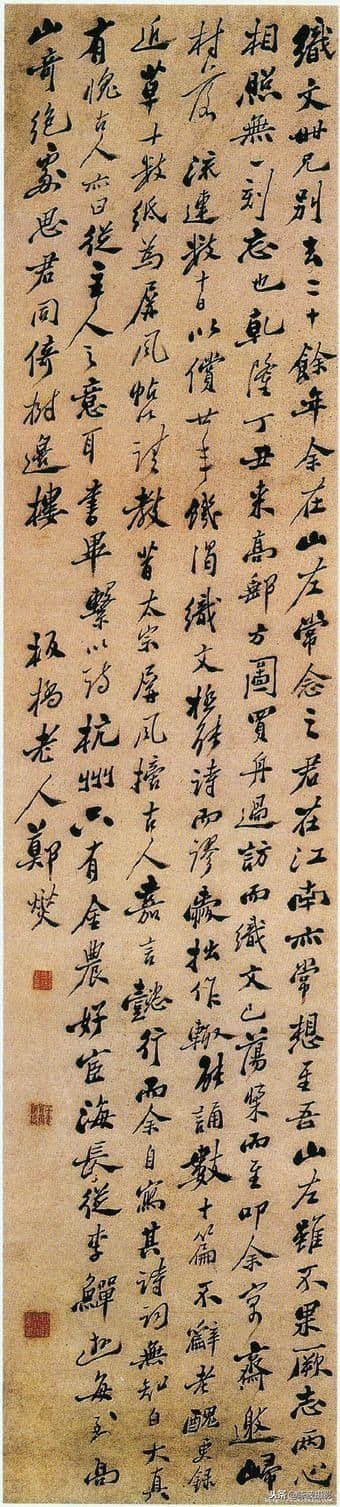 織文世兄別去二十餘年余在山左常念之君在江南亦常想至吾山左雖不果厥志兩心
相照無一刻忘也乾隆丁丑來高郵方圖買舟過訪而織文已蕩槳而至叩余寓齋邀歸
村落流連數十日以償廿年饑渴織文極能詩而謬愛拙作輒能誦數十篇不辭老醜更錄
近草十數紙為屏風帖請教昔太宗屏風搨古人嘉言懿行而余自寫其詩詞無知自大真
有愧古人亦曰從主人之意耳書畢繫以詩杭州只有金農好宦海長從李鱓遊每到高
山奇絕處思君同倚樹邊樓 板橋老人鄭燮
头条